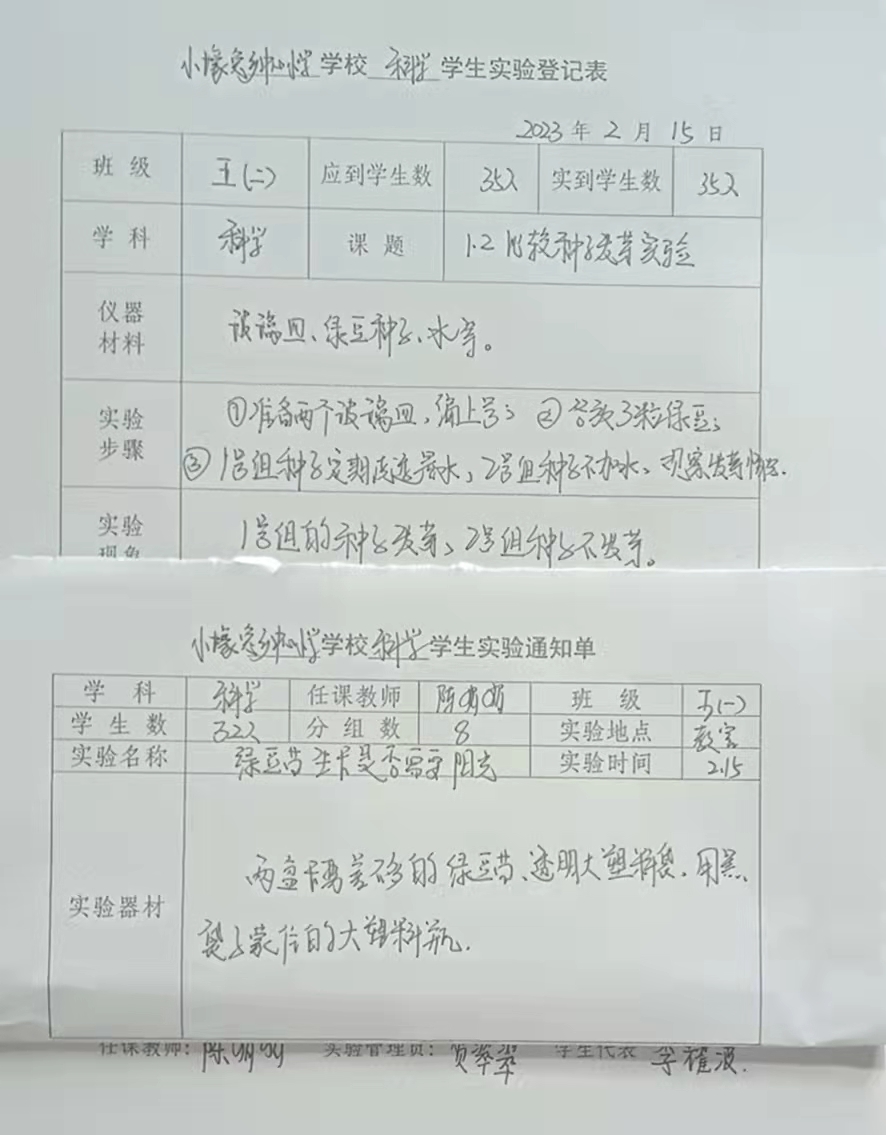 学校 科学 学生实验登记表
2023 年 2 月 15 日
班 级 五(二) 应到学生数 35人 实到学生数 35人
学 科 科学 课 题 1.2 比较种子发芽实验
仪器材料 玻璃皿、绿豆种子、水等。
实验步骤 ①准备两个玻璃皿,编上号; ②各放3粒绿豆;
③1号组种子定期适量水,2号组种子不加水,观察发芽情况.
实验现象 1号组的种子发芽,2号组种子不发芽。
学校 科学 学生实验通知单
学 科 科学 任课教师 陈 班 级 五(一)
学 生 数 32人 分 组 数 8 实验地点 教室
实验名称 绿豆苗生长是否需要阳光 实验时间 2.15
实验器材 两盆长势差不多的绿豆苗、透明大塑料袋、用黑
袋子蒙住的大塑料瓶.
任课教师: 陈 实验管理员: 贺翠翠 学生代表 李